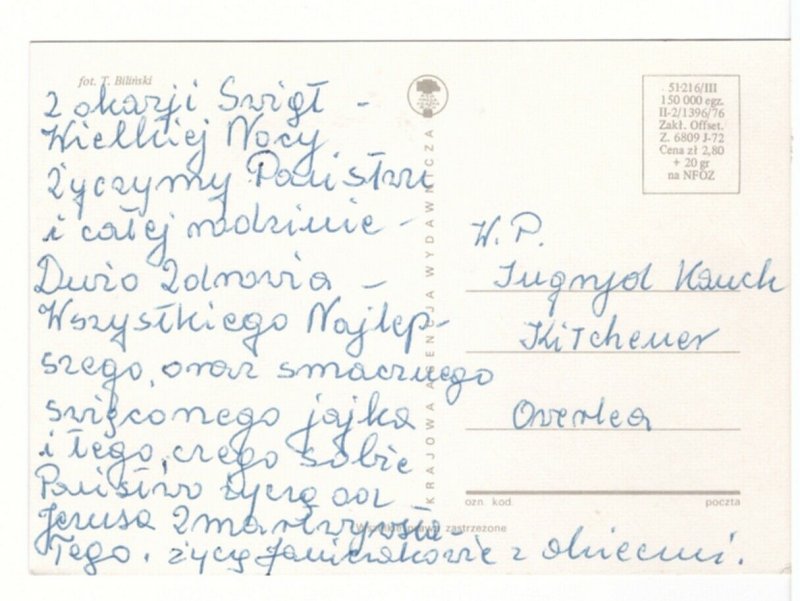 fot. T. Biliński
Z okazji Swiąt -
Wielkiej Nocy
Życzymy Państwu
i całej rodzinie -
Dużo Zdrowia -
Wszystkiego Najlep-
szego, oraz smacznego
święconego jajka
i tego, czego sobie
Państwo życzą od
Jezusa Zmartwychwsta-
łego. życzy z dziećmi.
KRAJOWA AGENCJA WYDAWNICZA
51-216/III
150 000 egz.
II-2/1396/76
Zakł. Offset.
Z. 6809 J-72
Cena zł 2,80
+ 20 gr
na NFOZ
W. P.
Kauch
Kitchener
Overlea
ozn. kod.
poczta
Wszelkie prawa zastrzeżone